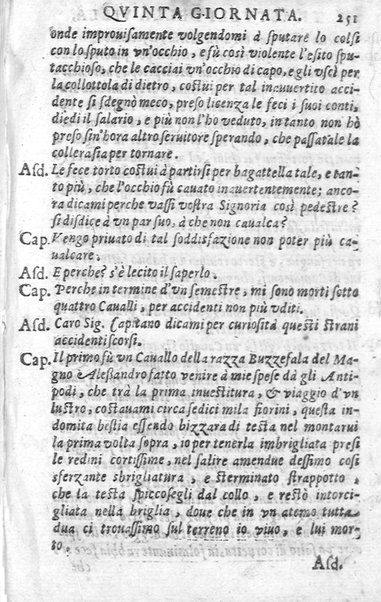 QVINTA GIORNATA. 251
onde improuisamente volgendomi à sputare lo colsi
con lo sputo in vn'occhio, e fù così violente l'esito spu-
tacchioso, che le cacciai vn'occhio di capo, e gli vscì per
la collottola di dietro, costui per tal inauuertito acci-
dente si sdegnò meco, preso licenza le feci i suoi conti,
diedi il salario, e più non l'hò veduto, in tanto non hò
preso sin'hora altro seruitore sperando, che passatale la
collera sia per tornare.
Asd. Le fece torto costui à partirsi per bagattella tale, e tan-
to più, che l'occhio fù cauato inauertentemente; anco-
ra dicami perche vassi vostra Signoria così pedestre?
si disdice à vn par suo, à che non caualca?
Cap. Vengo priuato di tal soddisfazione non poter più ca-
ualcare.
Asd. E perche? s'è lecito il saperlo.
Cap. Perche in termine d'vn semestre, mi sono morti sotto
quattro Caualli, per accidenti non più vditi.
Asd. Caro Sig. Capitano dicami per curiosità questi strani
accidenti scorsi.
Cap. Il primo fù vn Cauallo della razza Buzzefala del Ma-
gno Alessandro fatto venire à mie spese dà gli Anti-
podi, che trà la prima inuestitura, & viaggio d'vn
lustro, costauami circa sedici mila fiorini, questa in-
domita bestia essendo bizzara di testa nel montarui
la prima volta sopra, io per tenerla imbrigliata presi
le redini cortissime, nel salire amendue dessimo così
sferzante sbrigliatura, e stemperato strappotto,
che la testa spiccosegli dal collo, e restò intorci-
gliata nella briglia, doue che in vn atomo tutta
dua ci trouassimo sul terreno io viuo, e lui mor-
to.
Asd.